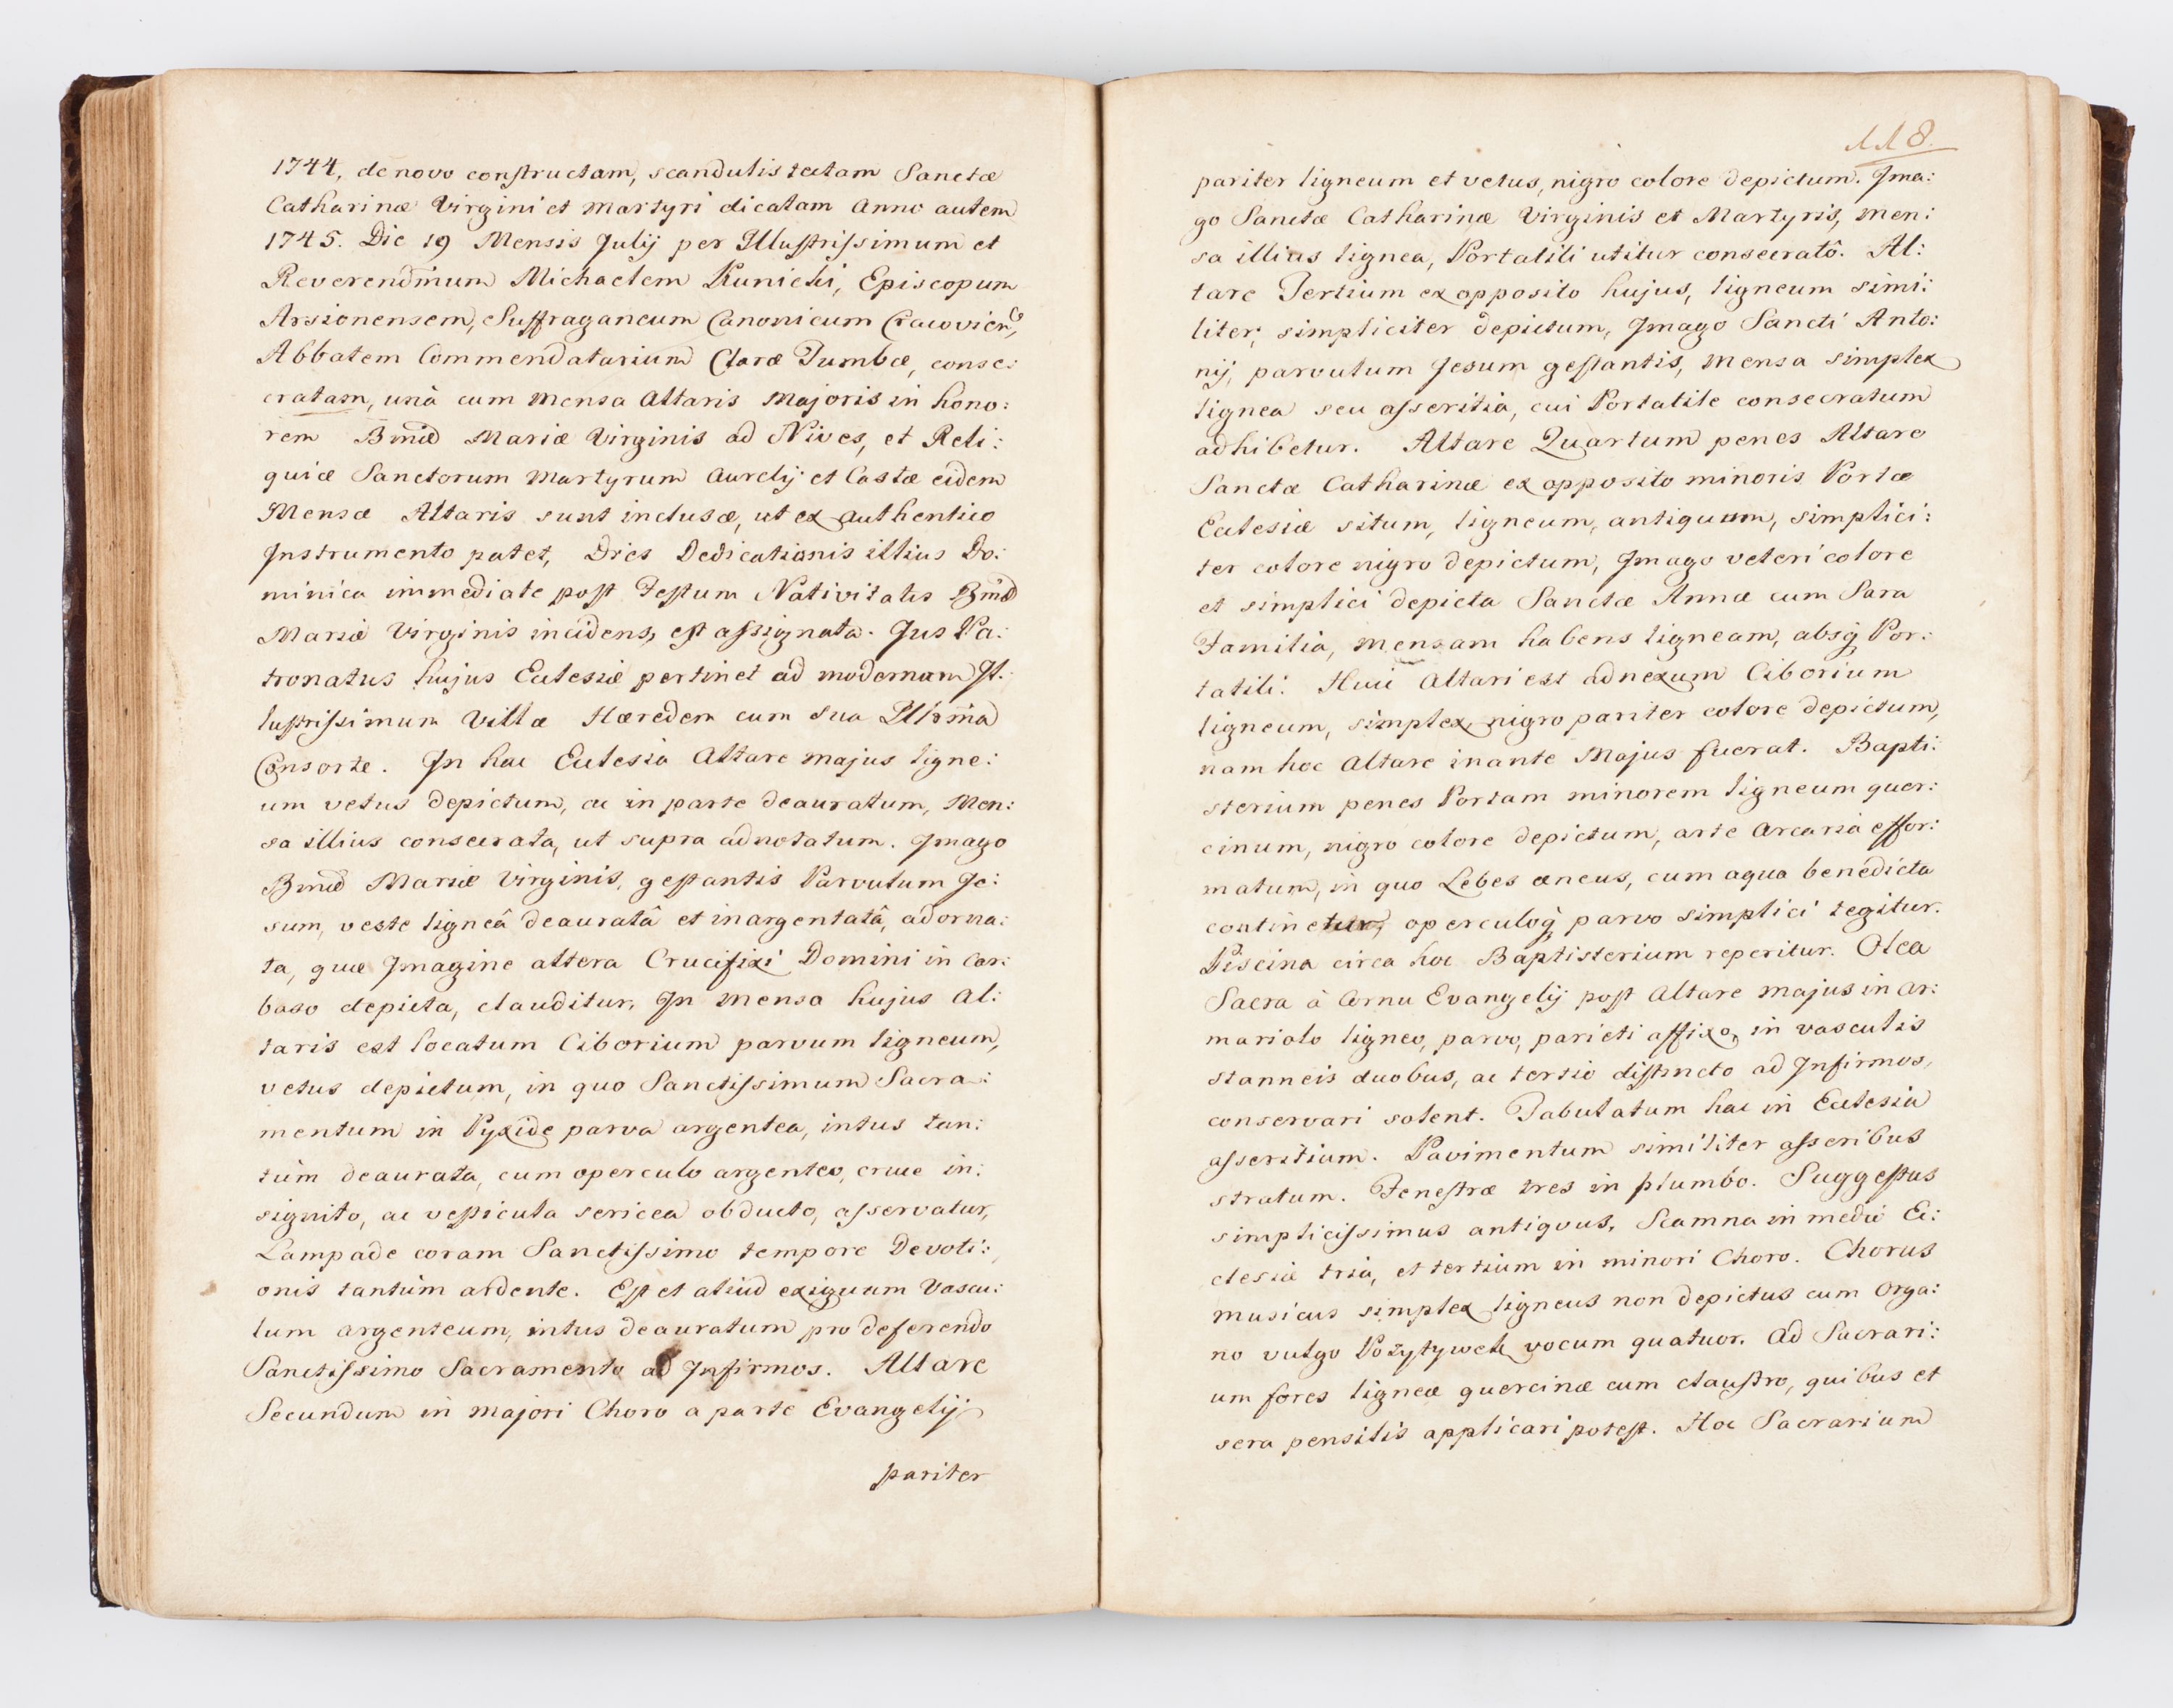 1744, denovo constructam, scandulis tectam Sanctæ
Catharinæ Virgini et Martyri dicatam Anno autem
1745. Die 19 Mensis Julij per Illustrissimum et
Reverendmum Michaelem Kunicki, Episcopum
Arsionensem, Suffraganeum Canonicum Cracovien,
Abbatem Commendatarium Claræ Tumbæ, conse:
cratam, unà cum Mensa Altaris Majoris in hono:
rem Bmæ Mariæ Virginis ad Nives, et Reli:
quiæ Sanctorum Martyrum Aurelij et Castæ eidem
Mensæ Altaris sunt inclusæ, ut ex Authentico
Instrumento patet, Dies Dedicationis illius Do:
minica immediate post Festum Nativitatis Bmæ
Mariæ Virginis incidens, est assignata. Jus Pa:
tronatus hujus Ecclesiæ pertinet ad modernum Il:
lustrissimum Villæ Hæredem cum sua Illsma
Consorte. In hac Ecclesia Altare majus ligne:
um vetus depictum, ac in parte deauratum, Men:
sa illius consecrata, ut supra adnotatum. Imago
Bmæ Mariæ Virginis, gestantis Parvulum Je:
sum, veste ligneâ deauratâ et inargentatâ, adorna:
ta, quæ Imagine altera Crucifixi Domini in Car:
baso depicta, clauditur. In Mensa hujus Al:
taris est locatum Ciborium parvum ligneum,
vetus depictum, in quo Sanctissimum Sacra:
mentum in Pyxide parva argentea, intus tan:
tùm deaurata, cum operculo argenteo, cruce in:
signito, ac vesticula sericea obducto, asservatur,
Lampade coram Sanctissimo tempore Devoti:
onis tantùm ardente. Est et aliud exiguum Vascu:
lum argenteum, intus deauratum pro deferendo
Sanctissimo Sacramento ad Infirmos. Altare
Secundum in majori Choro a parte Evangelij
pariter
118.
pariter ligneum et vetus, nigro colore depictum. Ima:
go Sanctæ Catharinæ Virginis et Martyris, men:
sa illius lignea, Portatili utitur consecratô. Al:
tare Tertium ex opposito hujus, ligneum simi:
liter, simpliciter depictum, Imago Sancti Anto:
nij, parvulum Jesum gestantis, Mensa simplex
lignea seu asseritia, cui Portatile consecratum
adhibetur. Altare Quartum penes Altare
Sanctæ Catharinæ ex opposito minoris Portæ
Ecclesiæ situm, ligneum, antiquum, simplici:
ter colore nigro depictum, Imago veteri colore
et simplici depicta Sanctæ Annæ cum Sara
Familia, mensam habens ligneam, absq Por:
tatili. Huic Altari est adnexum Ciborium
ligneum, simplex nigro pariter colore depictum,
nam hoc Altare inante Majus fuerat. Bapti:
sterium penes Portam minorem ligneum quer:
cinum, nigro colore depictum, arte arcaria effor:
matum, in quo Lebes æneus, cum aqua benedicta
continetur, operculoq parvo simplici tegitur.
Piscina circa hoc Baptisterium reperitur. Olea
Sacra à Cornu Evangelij post Altare majus in ar:
mariolo ligneo, parvo, parieti affixo, in vasculis
stanneis duobus, ac tertio distincto ad Infirmos,
conservari solent. Tabulatum hac in Ecclesia
asseritium. Pavimentum similiter asseribus
stratum. Fenestræ tres in plumbo. Suggestus
simplicissimus antiquus, Scamna in medio Ec:
clesiæ tria, et tertium in minori Choro. Chorus
musicus simplex ligneus non depictus cum Orga:
no vulgo Pozytywek vocum quatuor. Ad Sacrari:
um fores ligneæ quercinæ cum claustro, quibus et
sera pensilis applicari potest. Hoc Sacrarium